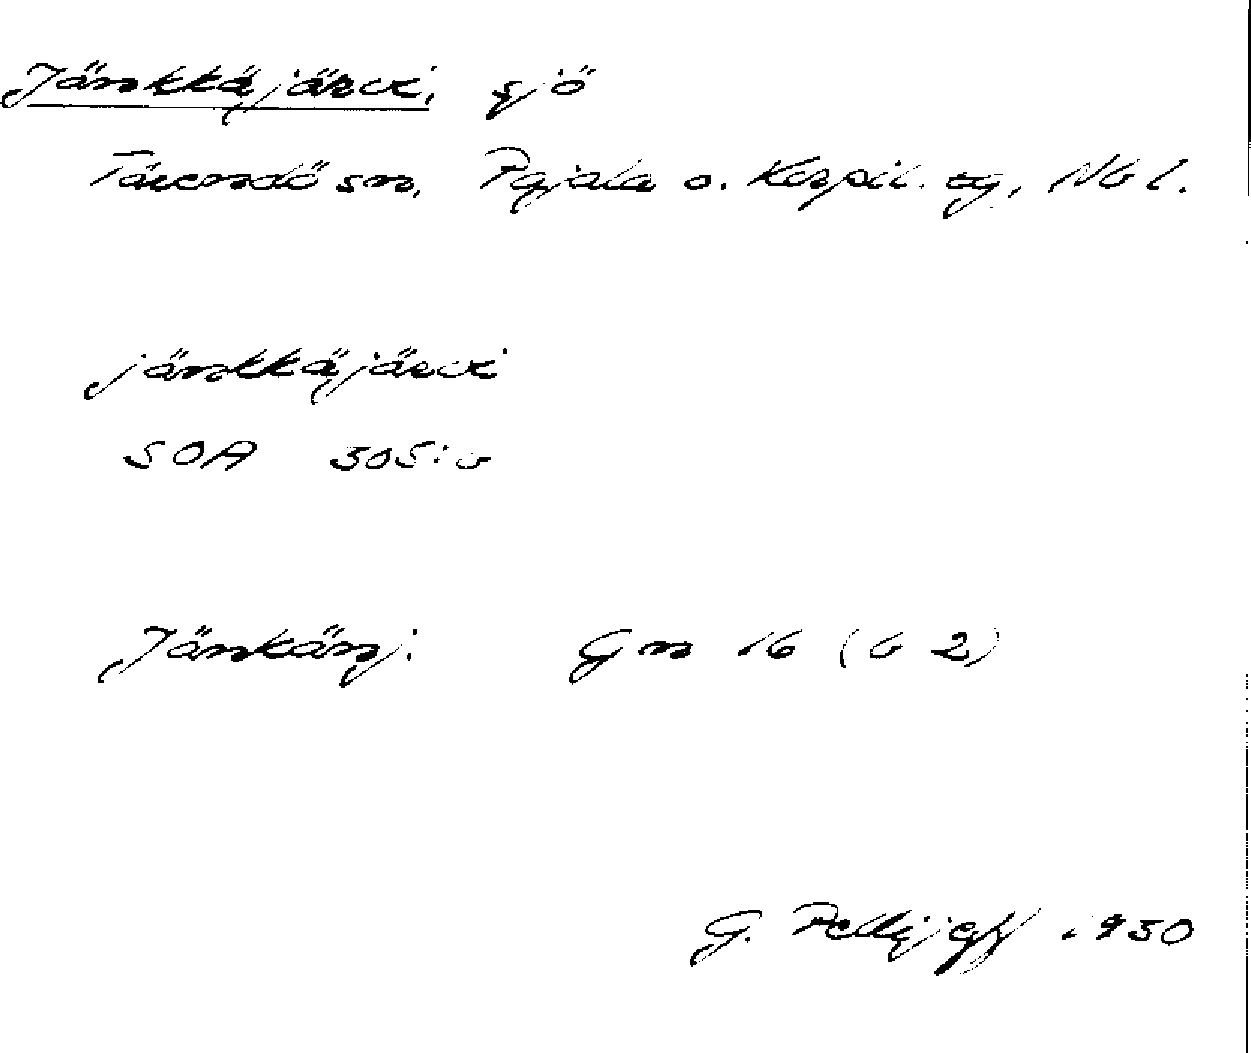 Jänkkäjärvi, sjö
Tärendö sn, Pajala o. Korpil. tg, Nb l.
jänkkäjärvi
SOA 305:b
Jänkänj: Gn 16 (b 2)
G. Pellijeff 1950